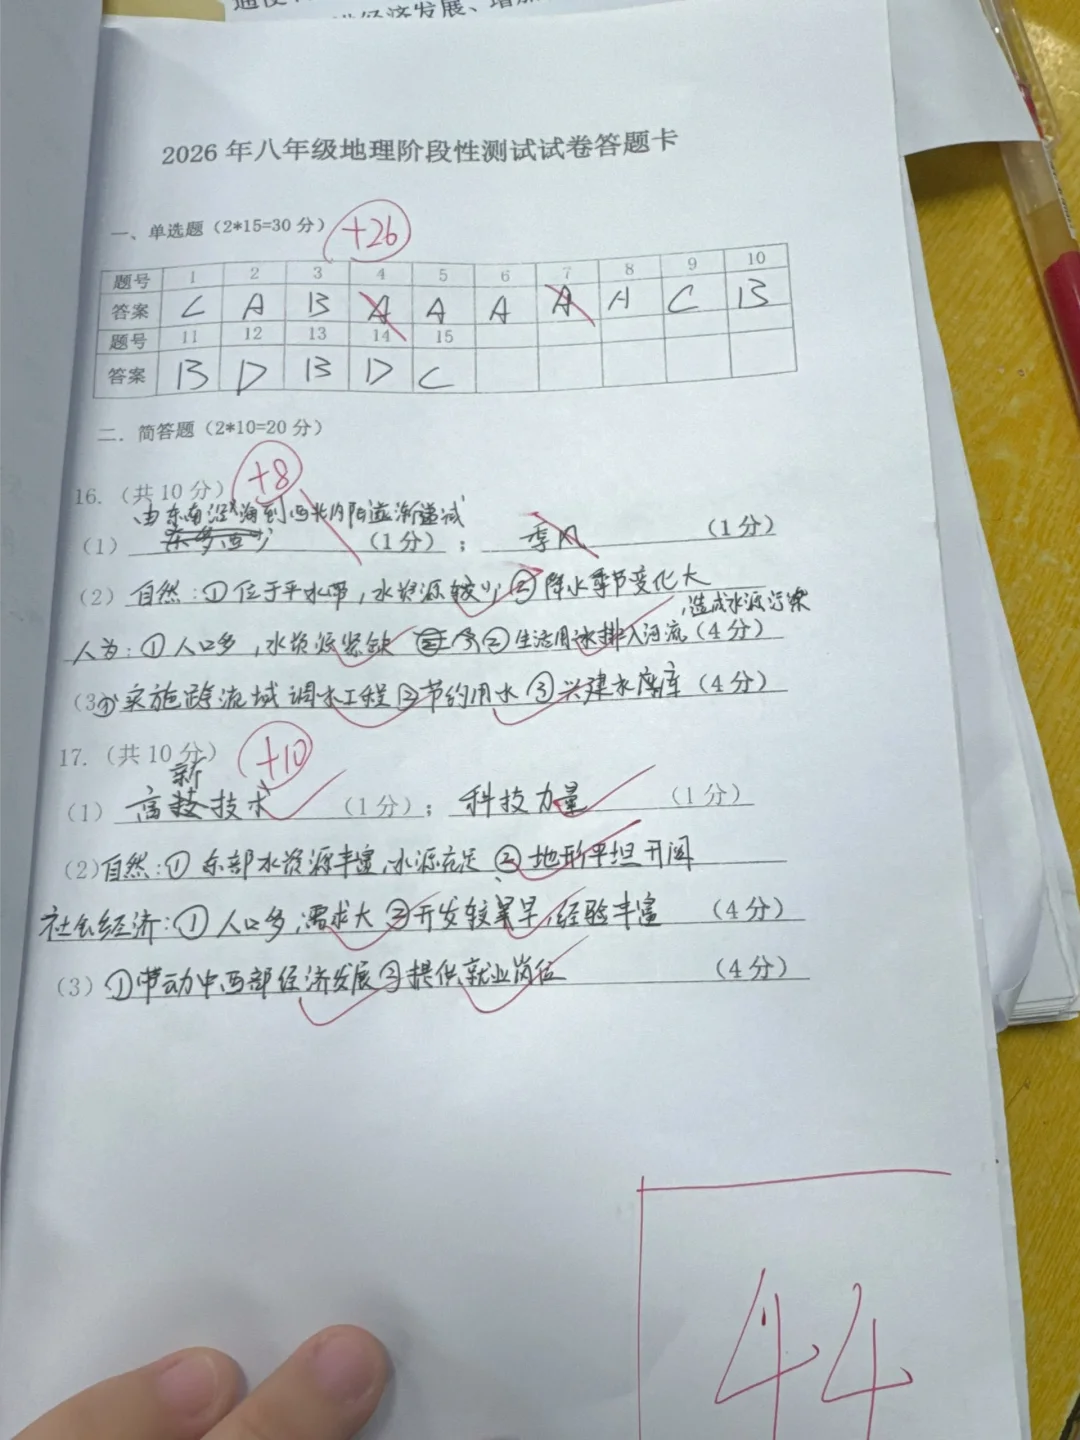 经济发展、增加
2026年八年级地理阶段性测试试卷答题卡
一、单选题（2*15=30分） +26
题号 1 2 3 4 5 6 7 8 9 10
答案 C A B A A A A A C B
题号 11 12 13 14 15
答案 B D B D C
二．简答题（2*10=20分）
16.（共10分） +8
由东南沿海到西北内陆逐渐递减
（1） 东多西少 （1分）； 季风 （1分）
（2）自然：①位于半水带，水资源较少②降水季节变化大
，造成水源污染
人为：①人口多，水资源紧缺 ②生活用水排入河流（4分）
（3）①实施跨流域调水工程②节约用水③兴建水库（4分）
17.（共10分） +10
新
（1） 高技技术 （1分）； 科技力量 （1分）
（2）自然：①东部水资源丰富，水源充足②地形平坦开阔
社会经济：①人口多，需求大②开发较早，经验丰富 （4分）
（3）①带动中西部经济发展②提供就业岗位 （4分）
44